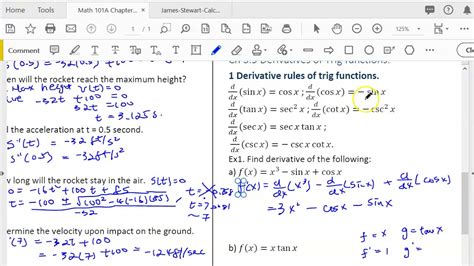 Math 101A Chapter...
James-Stewart-Calc...
1 / 1
125%
S'(0.5) = -32(0.5)
en will the rocket reach the maximum height?
Max height V(t)=0
-32t + 100 = 0
t = 3.125 s
d the acceleration at t = 0.5 second.
S''(t) = -32 ft/s²
S''(0.5) = -32 ft/s²
w long will the rocket stay in the air. S(t)=0
0 = -16t² + 100t + 85
-32
t = 7.0
~ 7
ermine the velocity upon impact on the ground.
'(7) = -32t + 100
= -32(7) + 100 = -124 ft/sec
Ch 3.3 Derivatives of Trig functions.
1 Derivative rules of trig functions.
d/dx (sin x) = cos x ; d/dx (cos x) = − sin x
d/dx (tan x) = sec² x ; d/dx (cot x) = − csc² x
d/dx (sec x) = sec x tan x ;
d/dx (csc x) = − csc x cot x.
Ex1. Find derivative of the following:
a) f(x) = x³ − sin x + cos x
f'(x) = d/dx (x³) - d/dx (sin x) + d/dx (cos x)
= 3x² - cos x - sin x
f = x g = tan x
b) f(x) = x tan x
f' = 1 g' =